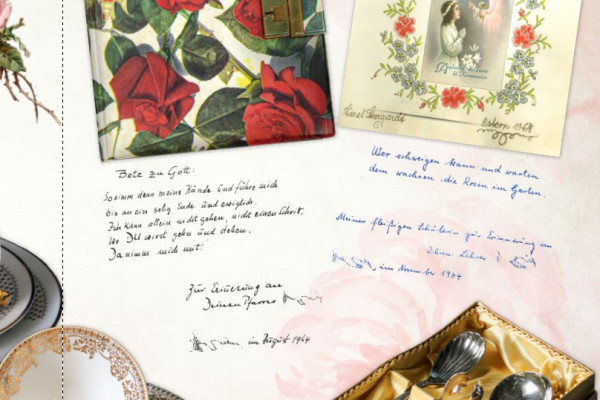 Bete zu Gott:
So nimm denn meine Hände und führe mich
bis an ein selig Ende und ewiglich.
Ich kann allein nicht gehen, nicht einen Schritt,
Wo DU wirst gehn und stehen,
Da nimm mich mit!
Zur Erinerung an
Deinen Pfarrer
im August 1964
Ostern 1964
Wer schweigen kann und warten
dem wachsen die Rosen im Garten.
Meiner fleißigen Schülerin zur Erinnerung an
Ihren Lehrer
im November 1964